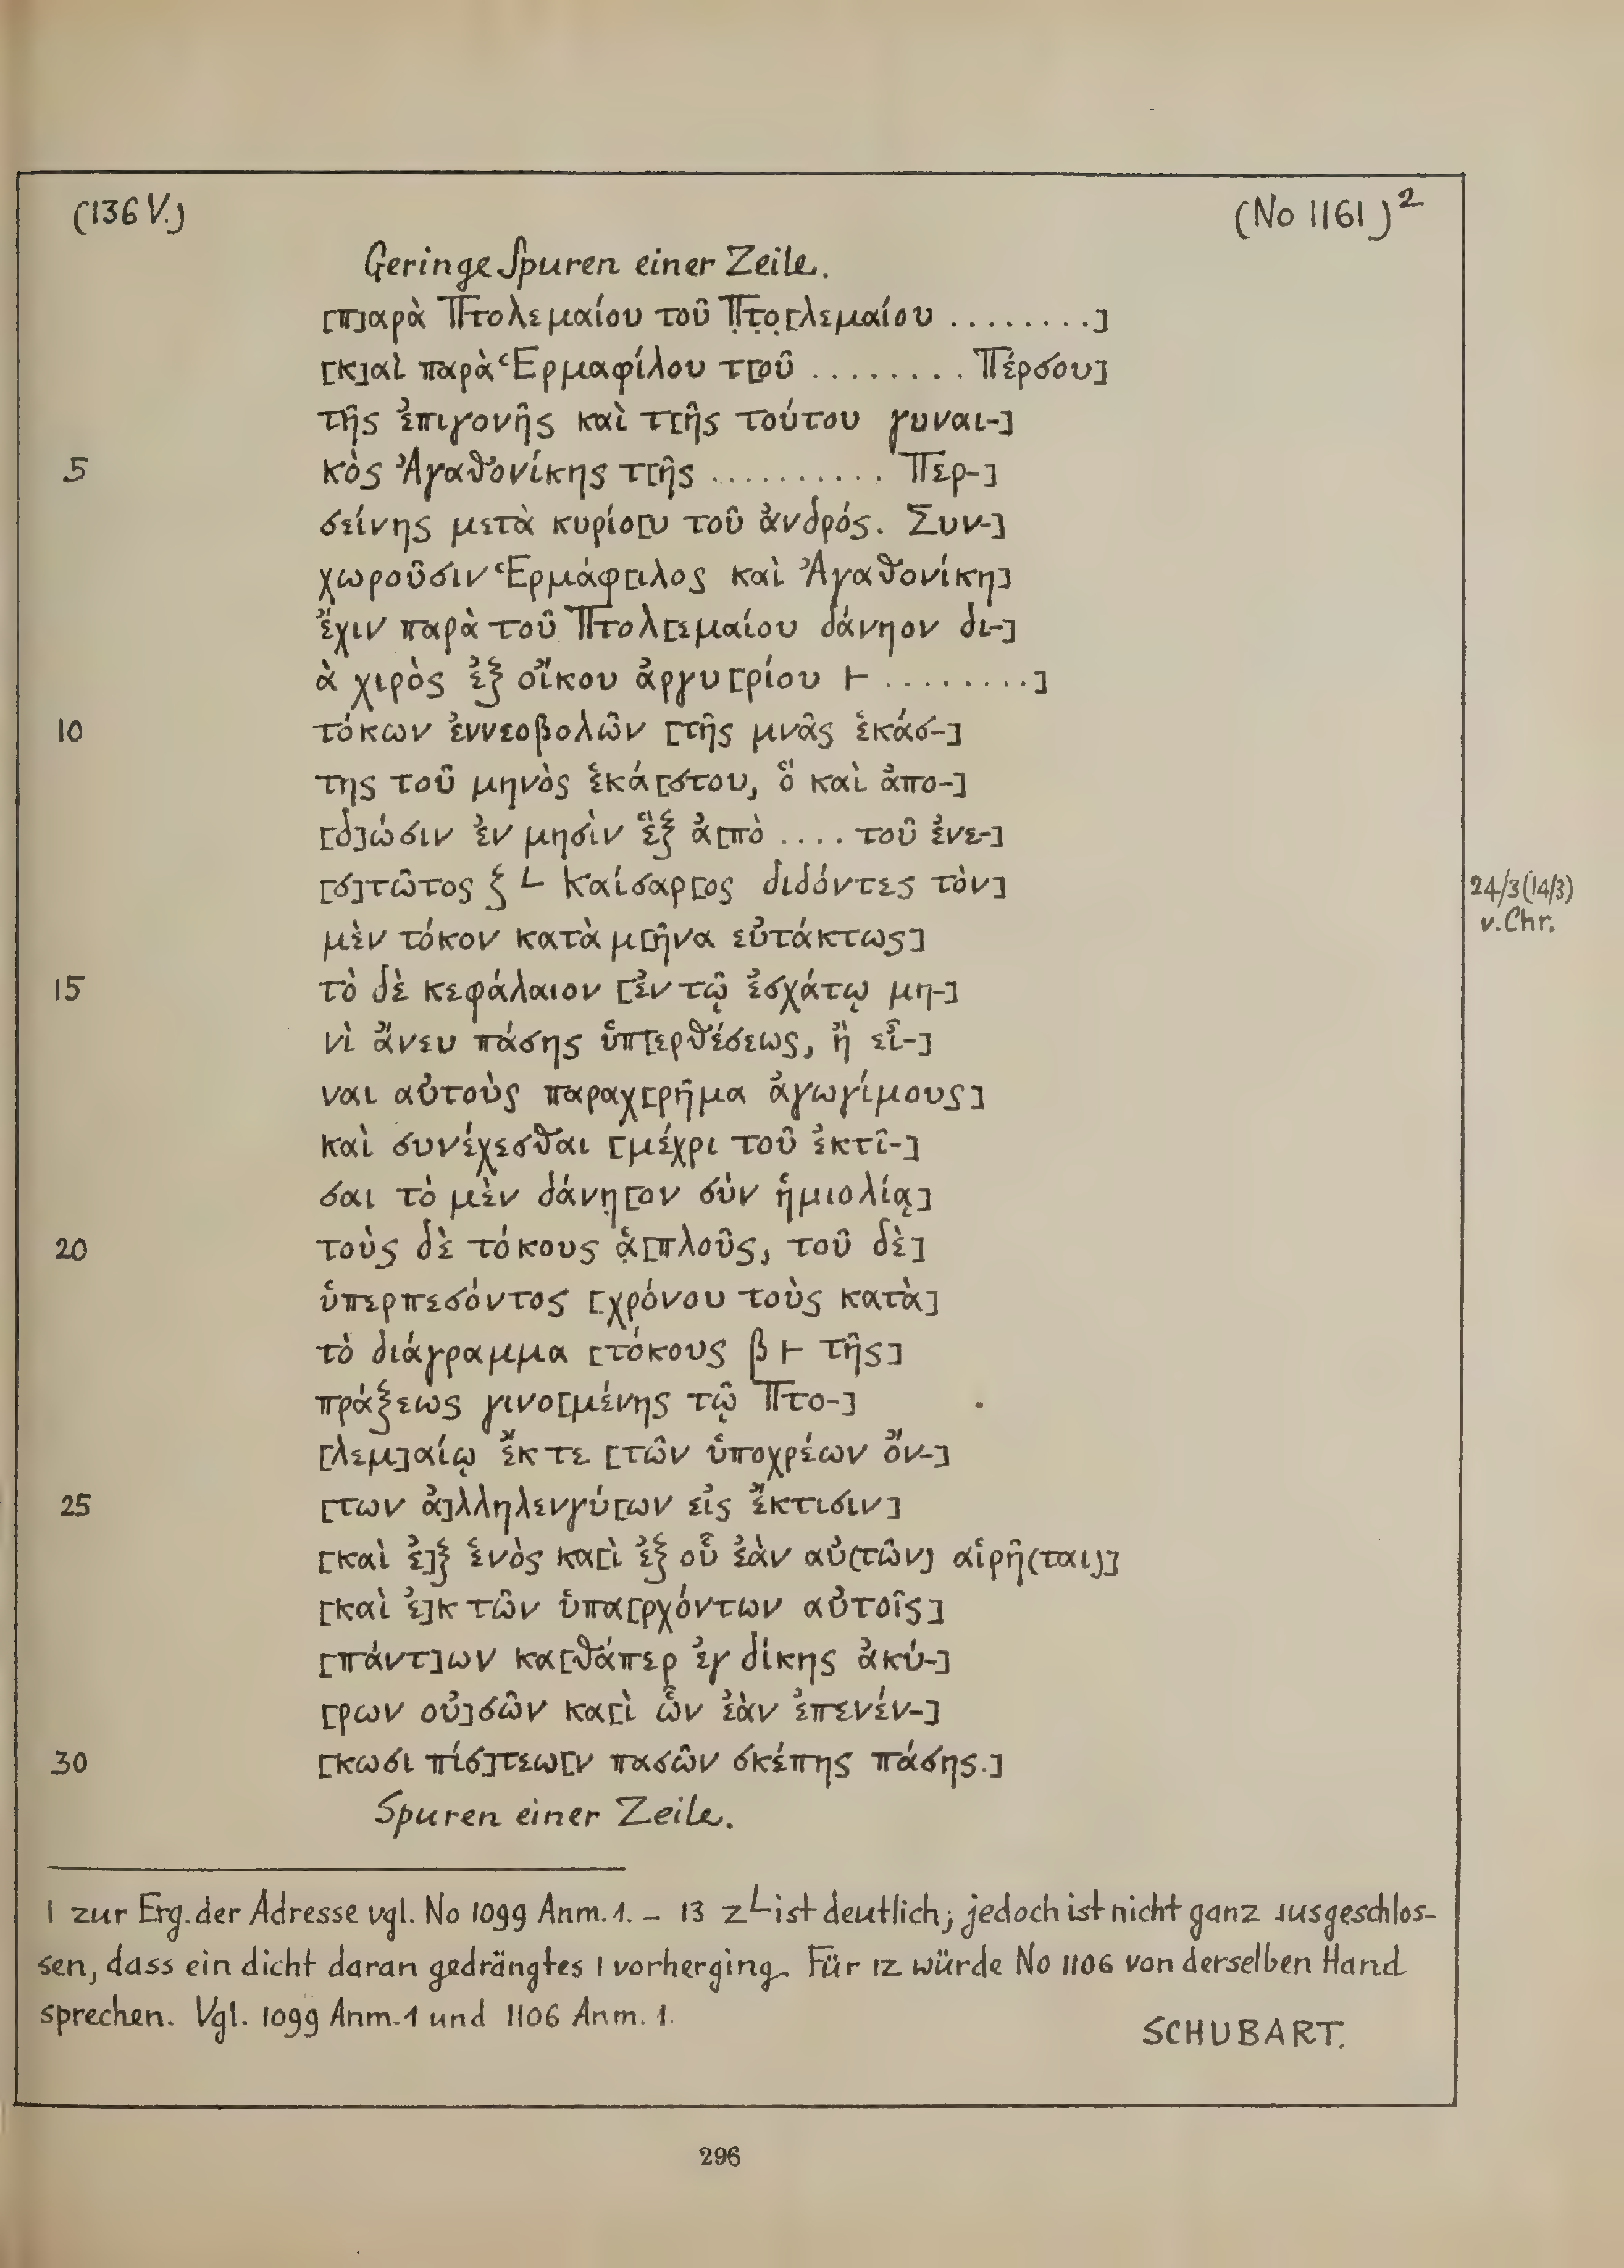 (136 V.) (No 1161)²
Geringe Spuren einer Zeile.
[π]αρὰ Πτολεμαίου τοῦ Π̣τ̣ο̣[λεμαίου ........]
[κ]αὶ παρὰ Ἑρμαφίλου τ[οῦ ........ Πέρσου]
τῆς ἐπιγονῆς καὶ τ[ῆς τούτου γυναι-]
5 κὸς Ἀγαθονίκης τ[ῆς .......... Περ-]
σείνης μετὰ κυρίο[υ τοῦ ἀνδρός. Συν-]
χωροῦσιν Ἑρμάφ[ιλος καὶ Ἀγαθονίκη]
ἔχιν παρὰ τοῦ Πτολ[εμαίου δάνηον δι-]
ὰ χιρὸς ἐξ οἴκου ἀργυ[ρίου ⊢ ........]
10 τόκων ἐννεοβολῶν [τῆς μνᾶς ἑκάσ-]
της τοῦ μηνὸς ἑκά[στου, ὃ καὶ ἀπο-]
[δ]ώσιν ἐν μησὶν ἓξ ἀ[πὸ .... τοῦ ἐνε-]
[σ]τῶτος ζ └ Καίσαρ[ος διδόντες τὸν]
24/3(14/3)
v. Chr.
μὲν τόκον κατὰ μ[ῆνα εὐτάκτως]
15 τὸ δὲ κεφάλαιον [ἐν τῷ ἐσχάτῳ μη-]
νὶ ἄνευ πάσης ὑπ[ερθέσεως, ἢ εἶ-]
ναι αὐτοὺς παραχ[ρῆμα ἀγωγίμους]
καὶ συνέχεσθαι [μέχρι τοῦ ἐκτῖ-]
σαι τὸ μὲν δάνη̣[ον σὺν ἡμιολίᾳ]
20 τοὺς δὲ τόκους ἁ̣[πλοῦς, τοῦ δὲ]
ὑπερπεσόντος [χρόνου τοὺς κατὰ]
τὸ διάγραμμα [τόκους β ⊢ τῆς]
πράξεως γινο[μένης τῷ Πτο-]
[λεμ]αίῳ ἔκ τε [τῶν ὑποχρέων ὄν-]
25 [των ἀ]λληλενγύ[ων εἰς ἔκτισιν]
[καὶ ἐ]ξ ἑνὸς κα[ὶ ἐξ οὗ ἐὰν αὐ(τῶν) αἱρῆ(ται)]
[καὶ ἐ]κ τῶν ὑπα[ρχόντων αὐτοῖς]
[πάντ]ων κα[θάπερ ἐγ δίκης ἀκύ-]
[ρων οὐ]σῶν κα[ὶ ὧν ἐὰν ἐπενέν-]
30 [κωσι πίσ]τεω[ν πασῶν σκέπης πάσης.]
Spuren einer Zeile.
1 zur Erg. der Adresse vgl. No 1099 Anm. 1. – 13 z└ ist deutlich; jedoch ist nicht ganz ausgeschlos-
sen, dass ein dicht daran gedrängtes I vorherging. Für IZ würde No 1106 von derselben Hand
sprechen. Vgl. 1099 Anm. 1 und 1106 Anm. 1.
SCHUBART.
296